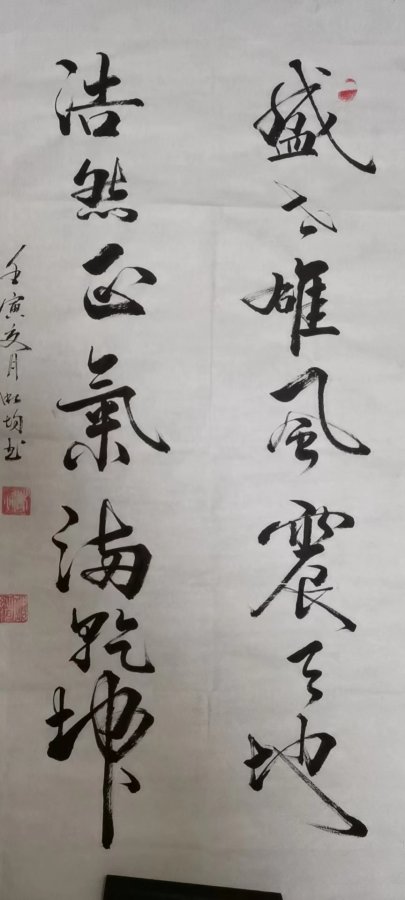 盛世雄风震天地
浩然正氣满乾坤
壬寅夏月